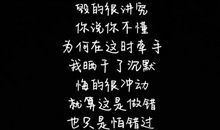 散的很讲究
你说你不懂
为何在这时牵手
我晒干了沉默
悔的很冲动
就算这是做错
也只是怕错过